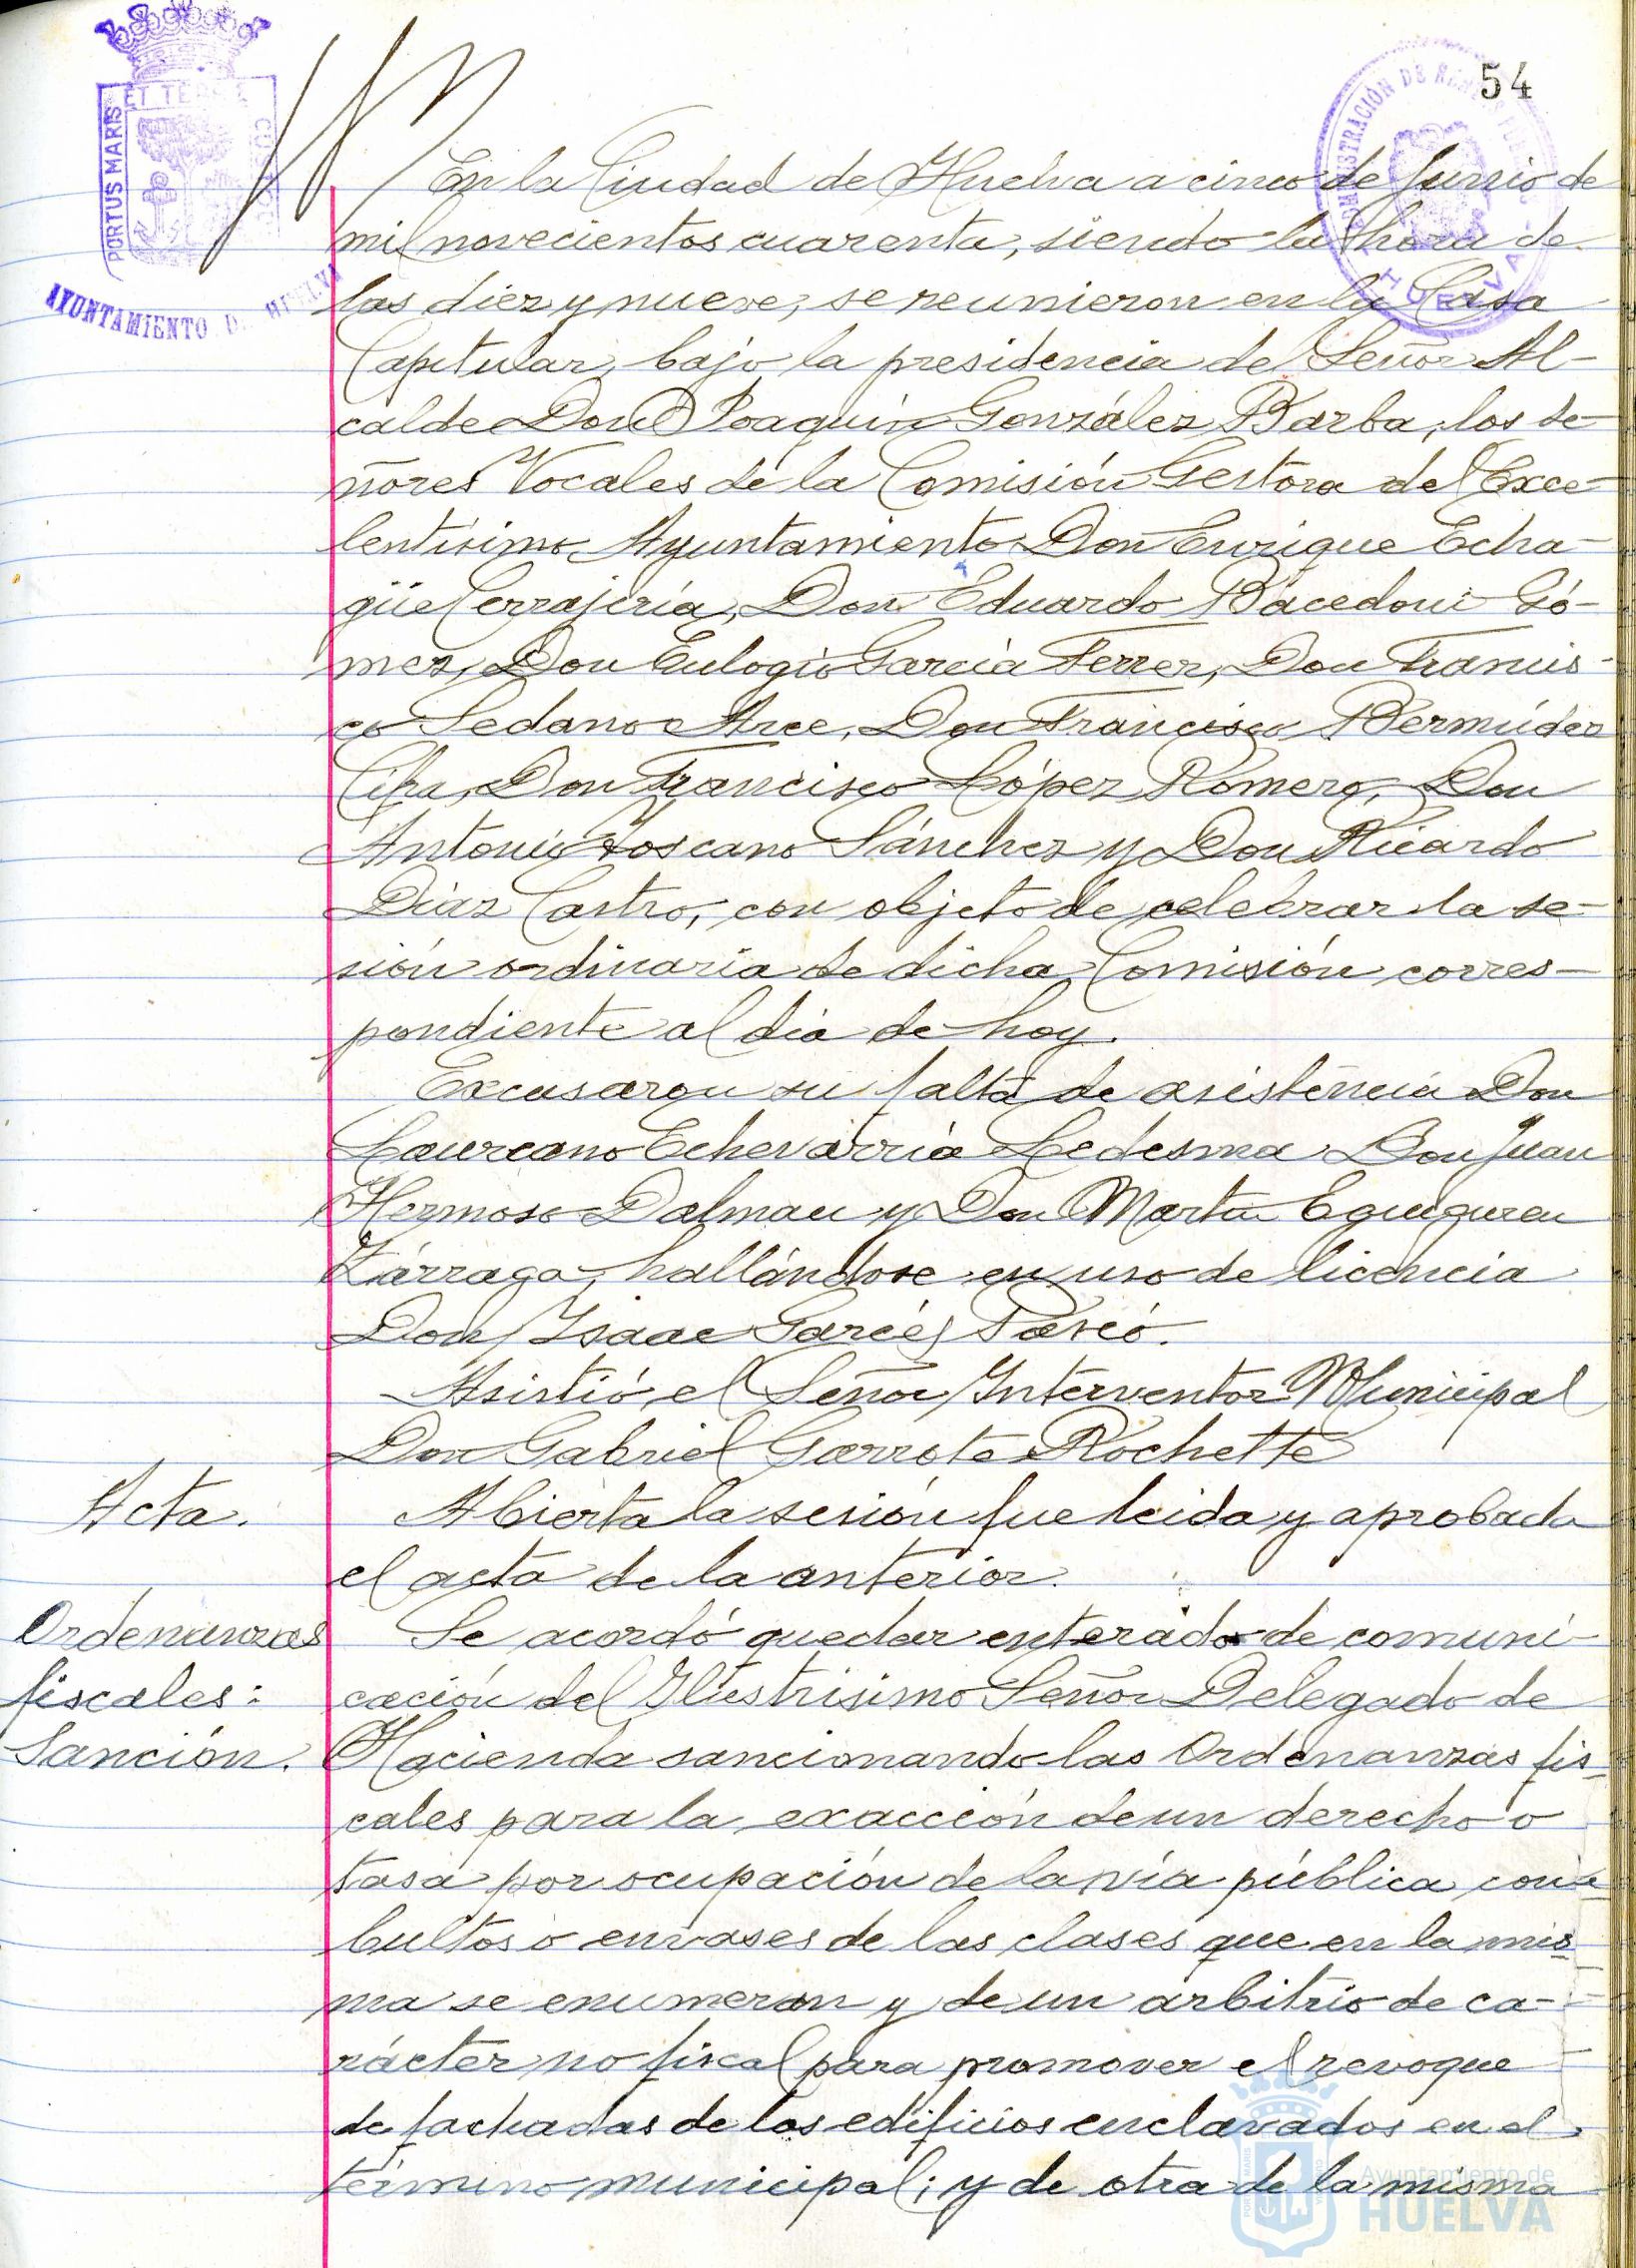 54
PORTUS MARIS ET TERRE CUSTODIA
AYUNTAMIENTO DE HUELVA
ADMINISTRACIÓN DE
HUELVA
En la Ciudad de Huelva a cinco de Junio de
mil novecientos cuarenta, siendo la hora de
las diez y nueve, se reunieron en la Casa
Capitular, bajo la presidencia del Señor Al-
calde Don Joaquín González Barba, los se-
ñores Vocales de la Comisión Gestora del Exce-
lentísimo Ayuntamiento Don Enrique Echa-
güe Cerrajería, Don Eduardo Bacedoni Gó-
mez, Don Eulogio García Ferrer, Don Francis-
co Sedano Arce, Don Francisco Bermúdez
Don Francisco López Romero, Don
Antonio Toscano Sánchez y Don Ricardo
Díaz Castro, con objeto de celebrar la se-
sión ordinaria de dicha Comisión corres-
pondiente al día de hoy.
Excusaron su falta de asistencia Don
Laureano Echevarría Ledesma, Don Juan
Hermoso Dalmau y Don Martín Eguiguren
Zárraga, hallándose en uso de licencia
Don Isaac Garcés
Asistió el Señor Interventor Municipal
Don Gabriel Garrote Rochette
Acta.
Abierta la sesión fue leida y aprobada
el acta de la anterior.
Ordenanzas
fiscales:
Sanción.
Se acordó quedar enterado de comuni-
cación del Ilustrísimo Señor Delegado de
Hacienda sancionando las Ordenanzas fis-
cales para la exacción de un derecho o
tasa por ocupación de la vía pública con
bultos o envases de las clases que en la mis-
ma se enumeran y de un arbitrio de ca-
rácter no fiscal para promover el revoque
de fachadas de los edificios enclavados en el
término municipal; y de otra de la misma
Ayuntamiento de
HUELVA